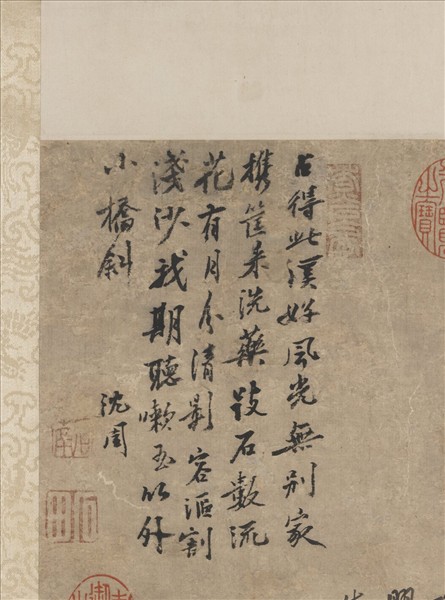 占得此溪好風光無別家
携筐来洗藥跂石數流
花有月分清影容漚割
淺沙我期聽嗽玉竹外
小橋斜
沈周